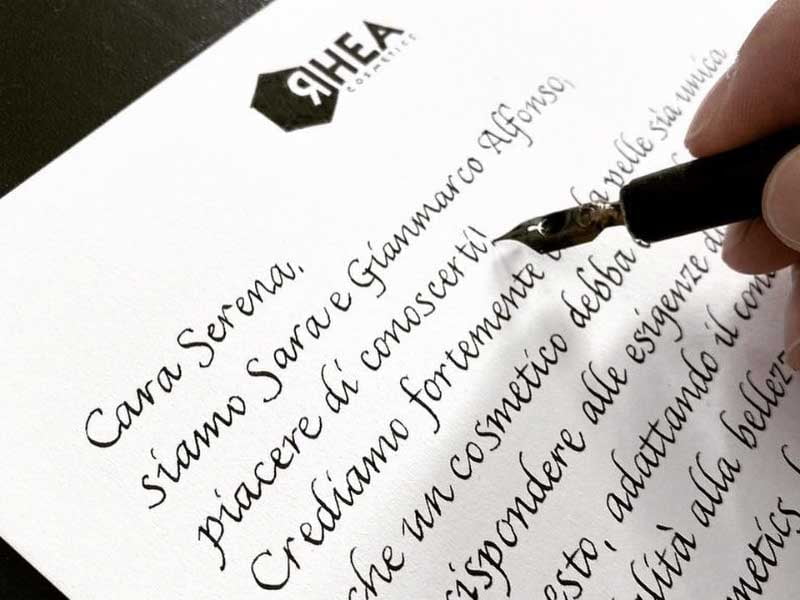 RHEA
COSMETICS
Cara Serena,
siamo Sara e Gianmarco Alfonso,
piacere di conoscerti!
Crediamo fortemente pelle sia unica
che un cosmetico debba
rispondere alle esigenze di
esto, adattando il con
alità alla bellezz
metics